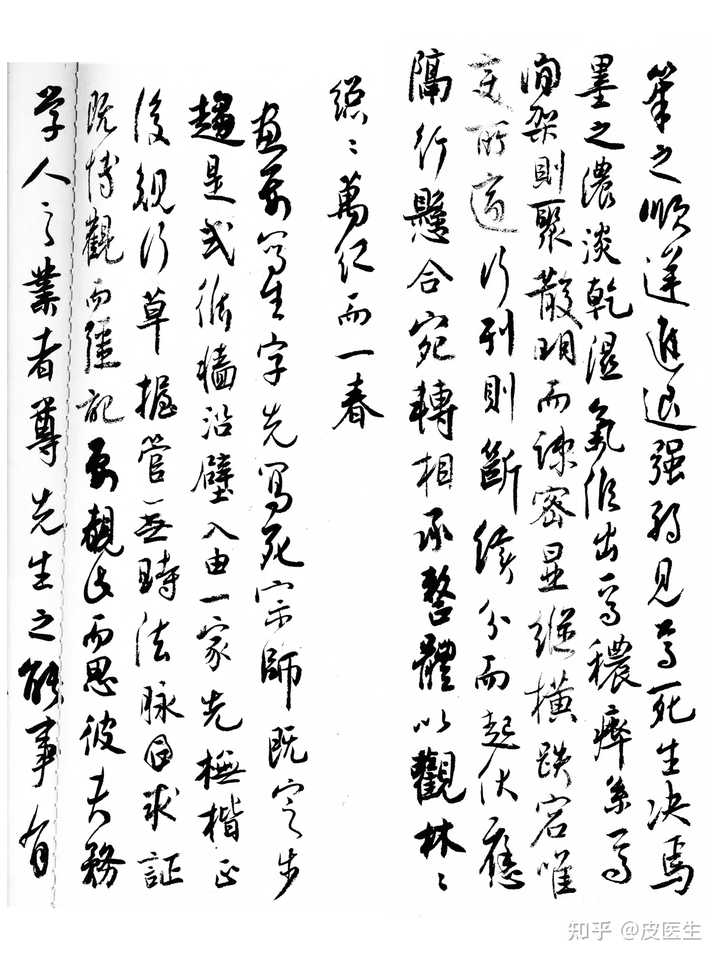 筆之順逆進退强弱見焉死生决焉
墨之濃淡乾濕氣候出焉穠瘠系焉
間架則聚散明而疎密显縱橫跌宕唯
变所適行列則斷續分而起伏應
隔行懸合宛轉相承整體以觀林〻
總〻萬仁而一春
畫要写生字先写死宗師既定步
趨是式循墻沿壁入由一家先橅楷正
後規行草握管無時法脉日求証
既博觀而强記要觀此而思彼夫務
学人之業者尊先生之能事有
知乎 @皮医生